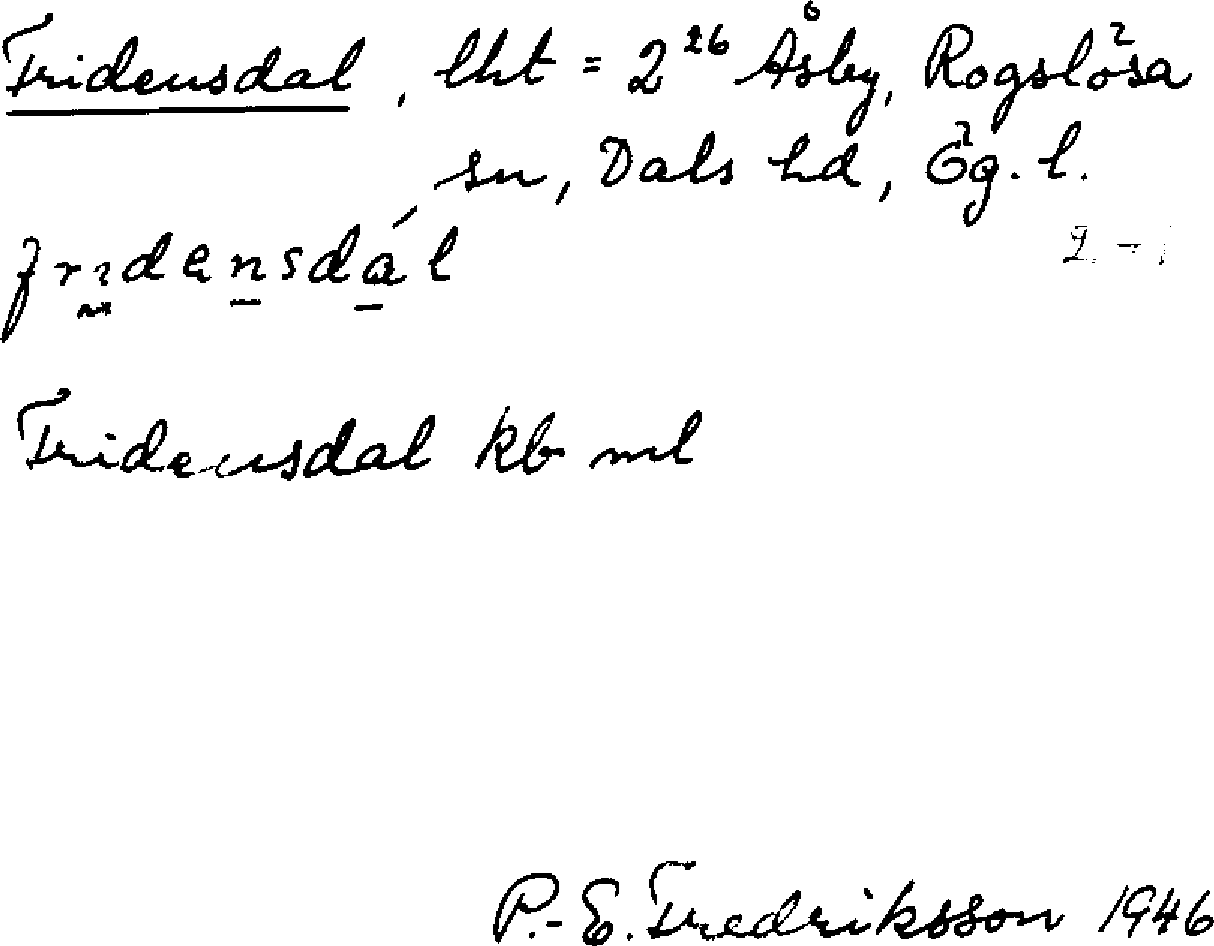 Fridensdal, lht = 2²⁶ Åsby, Rogslösa
sn, Dals hd, Ög. l.
fridensdál
Fridensdal kb ml
P.-E. Fredriksson 1946